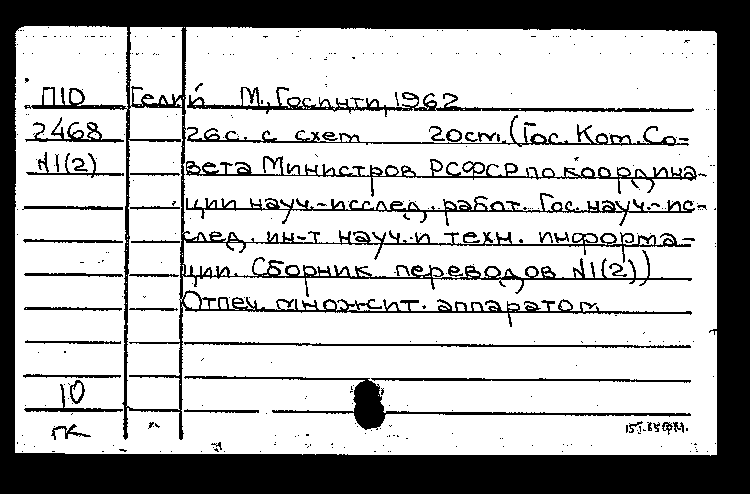 П10 Гелий М., Госинти, 1962
2468 26с. с схем 20см. (Гос. Ком. Со=
N1(2) вета Министров РСФСР по координа-
ции науч.-исслед. работ. Гос. науч.-ис=
след. ин-т науч. и техн. информа=
ции. Сборник переводов N1(2))
Отпеч. множит. аппаратом
10
гк